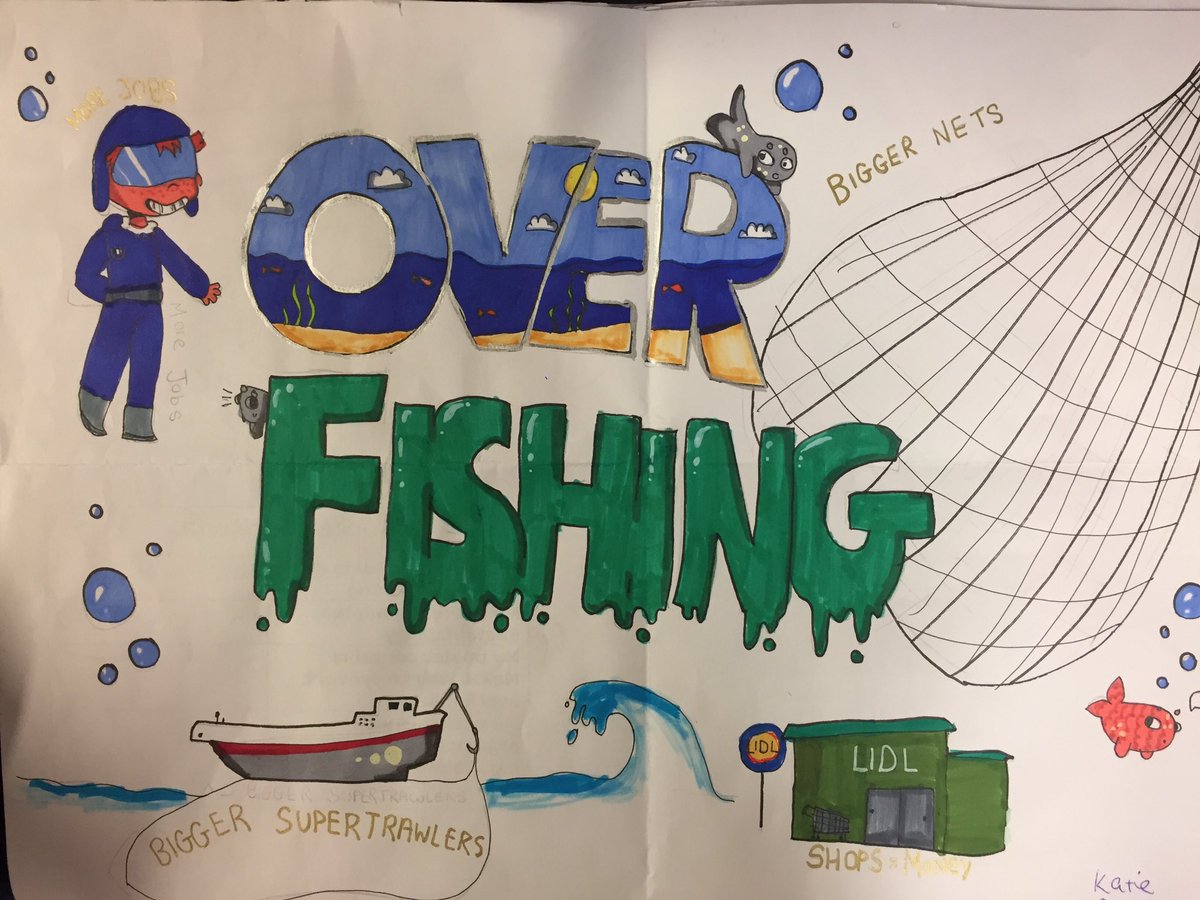 MORE JOBS
OVER
BIGGER NETS
More Jobs
FISHING
LIDL
LIDL
BIGGER SUPERTRAWLERS
BIGGER SUPERTRAWLERS
SHOPS = MONEY
Katie